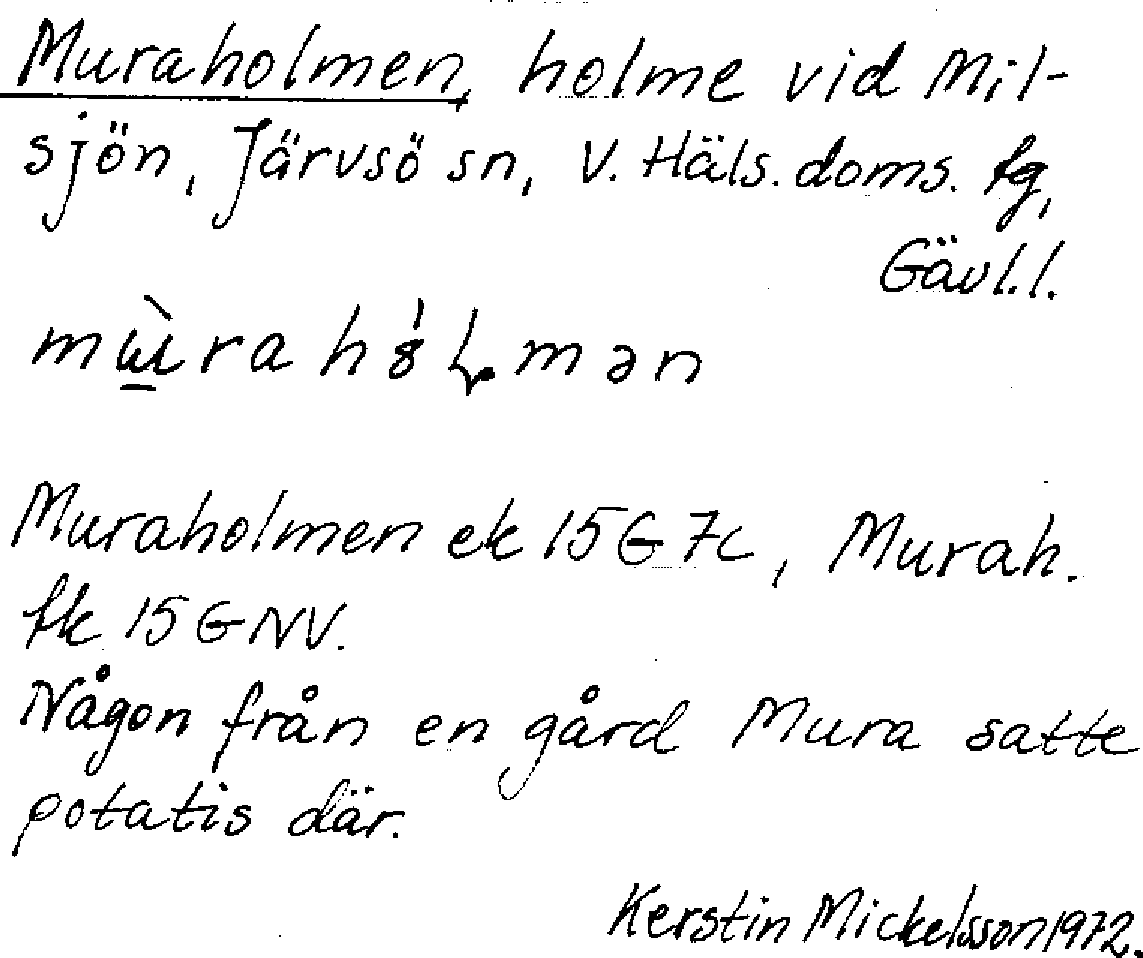 Muraholmen, holme vid Mil-
sjön, Järvsö sn, V. Häls. doms. fg,
Gävl.l.
Muraholmen ek 15G7c, Murah.
fk 15GNV.
Någon från en gård Mura satte
potatis där.
Kerstin Mickelsson 1972.